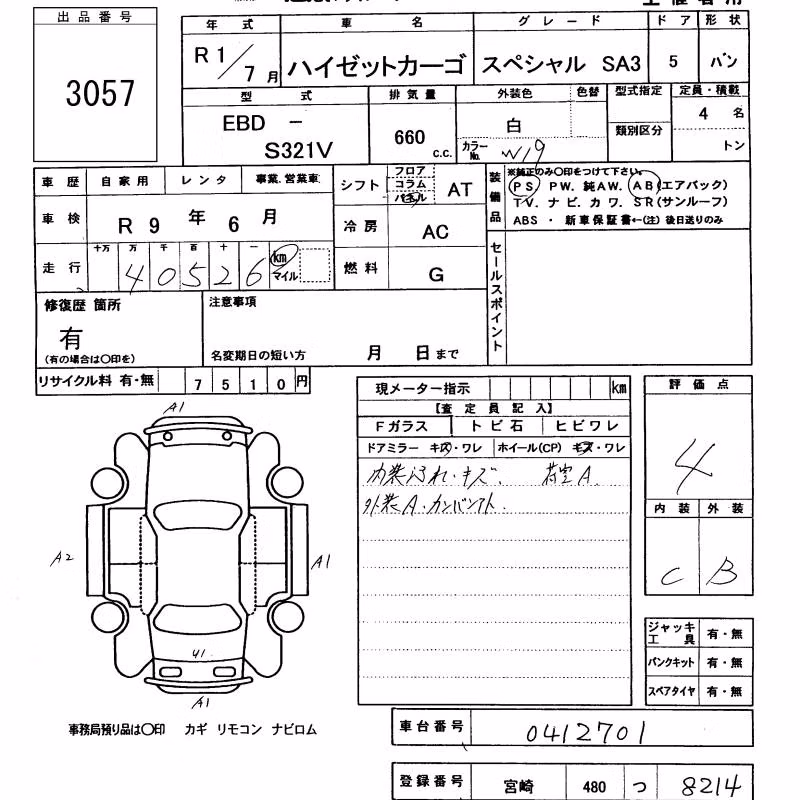 出品番号
3057
年式 車名 グレード ドア 形状
R1/7月 ハイゼットカーゴ スペシャル SA3 5 バン
型式 排気量 外装色 色替 型式指定 定員・積載
EBD - S321V 660 c.c. 白 カラーNo. W19 類別区分 4名 トン
車歴 自家用 レンタ 事業.営業車
車検 R9年6月
走行 十万 万 千 百 十 一 km マイル
40526
シフト フロア コラム パネル AT
冷房 AC
燃料 G
装備品 ※純正のみ○印をつけて下さい。
PS PW. 純AW. AB(エアバック)
TV. ナビ. カワ. SR(サンルーフ)
ABS ・ 新車保証書←(注) 後日送りのみ
セールスポイント
修復歴 箇所
有
(有の場合は○印を)
注意事項
名変期日の短い方 月 日まで
リサイクル料 有・無 7510円
現メーター指示 km
【査定員記入】
Fガラス トビ石 ヒビワレ
ドアミラー キズ・ワレ ホイール(CP) キズ・ワレ
内装汚れ・キズ. 荷室A.
外装A・カンバント.
評価点
4
内装 外装
C B
A1
A2
A1
U1
A1
ジャッキ工具 有・無
パンクキット 有・無
スペアタイヤ 有・無
事務局預り品は○印 カギ リモコン ナビロム
車台番号 0412701
登録番号 宮崎 480 つ 8214